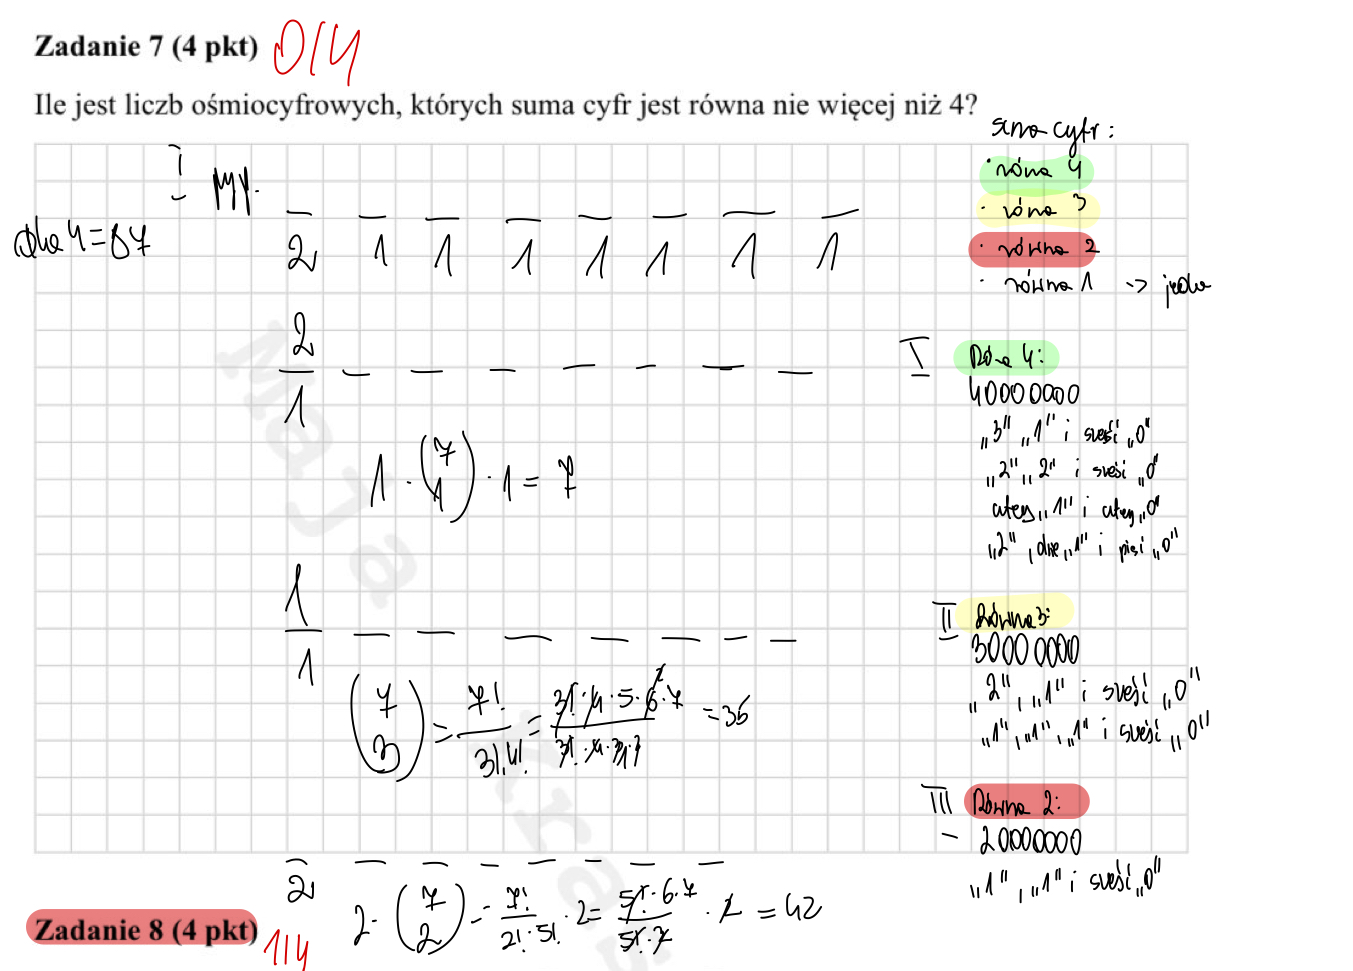 Zadanie 7 (4 pkt) 0/4
Ile jest liczb ośmiocyfrowych, których suma cyfr jest równa nie więcej niż 4?
suma cyfr:
· równa 4
· równa 3
· równa 2
· równa 1 -> jedna
I
dla 4 = 87
2 1 1 1 1 1 1 1
2
1
1 · (7 1) · 1 = 7
1
1
(7 3) = 7! / 3!·4! = 3!·4·5·6·7 / 3!·4·3·2 = 35
2
2 · (7 2) = 7! / 2!·5! · 2 = 5!·6·7 / 5!·2 · 2 = 42
I Równa 4:
40000000
„3" „1" i sześć „0"
„2" „2" i sześć „0"
cztery „1" i cztery „0"
„2", dwie „1" i pięć „0"
II Równa 3:
30000000
„2", „1" i sześć „0"
„1", „1", „1" i sześć „0"
III Równa 2:
- 20000000
„1", „1" i sześć „0"
Zadanie 8 (4 pkt) 1/4
Maja
Kras